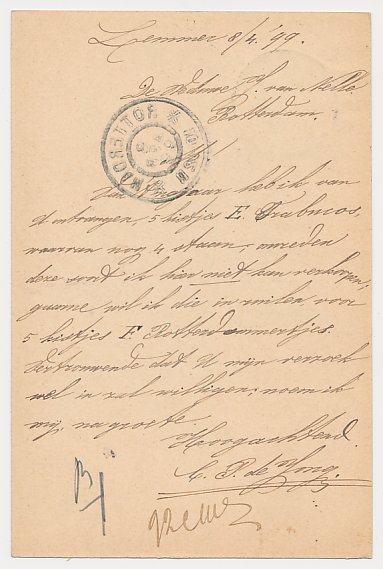 Lemmer 8/4 '99.
De Weduwe J. van Nelle
Rotterdam.
ROTTERDAM
van
U ontvangen, 5 kistjes E Trabucos,
waarvan nog 4 staan, omreden
deze soort ik hier niet kan verkopen,
gaarne wil ik die in ruilen voor
5 kistjes F. Rotterdammertjes.
Vertrouwende dat U mijn verzoek
wel in zal willigen, noem ik
mij, na groete.
Hoogachtend
C. P. de Jong.